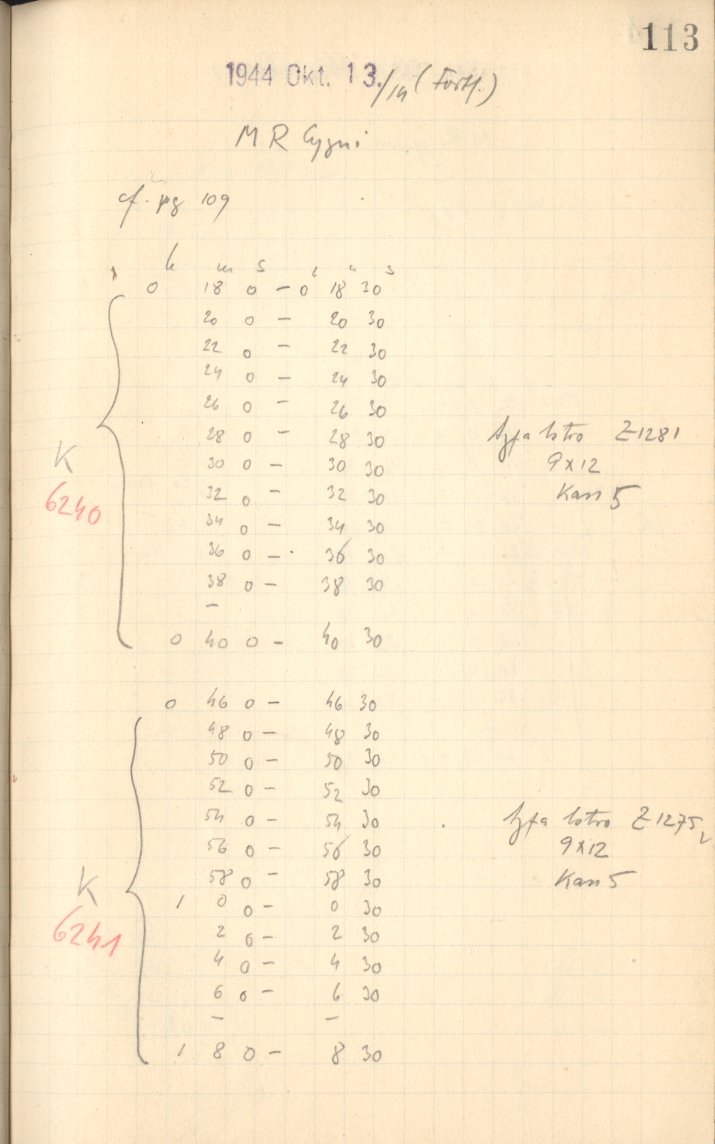 113
1944 Okt. 13./14 (Forts.)
MR Cygni
cf. pg 109
h m s h m s
0 18 0 – 0 18 30
20 0 – 20 30
22 0 – 22 30
24 0 – 24 30
26 0 – 26 30
28 0 – 28 30
30 0 – 30 30
32 0 – 32 30
34 0 – 34 30
36 0 – 36 30
38 0 – 38 30
–
0 40 0 – 40 30
K
6240
Agfa Astro Z1281
9x12
Kass 5
0 46 0 – 46 30
48 0 – 48 30
50 0 – 50 30
52 0 – 52 30
54 0 – 54 30
56 0 – 56 30
58 0 – 58 30
1 0 0 – 0 30
2 0 – 2 30
4 0 – 4 30
6 0 – 6 30
– –
1 8 0 – 8 30
K
6241
Agfa Astro Z1275
9x12
Kass 5